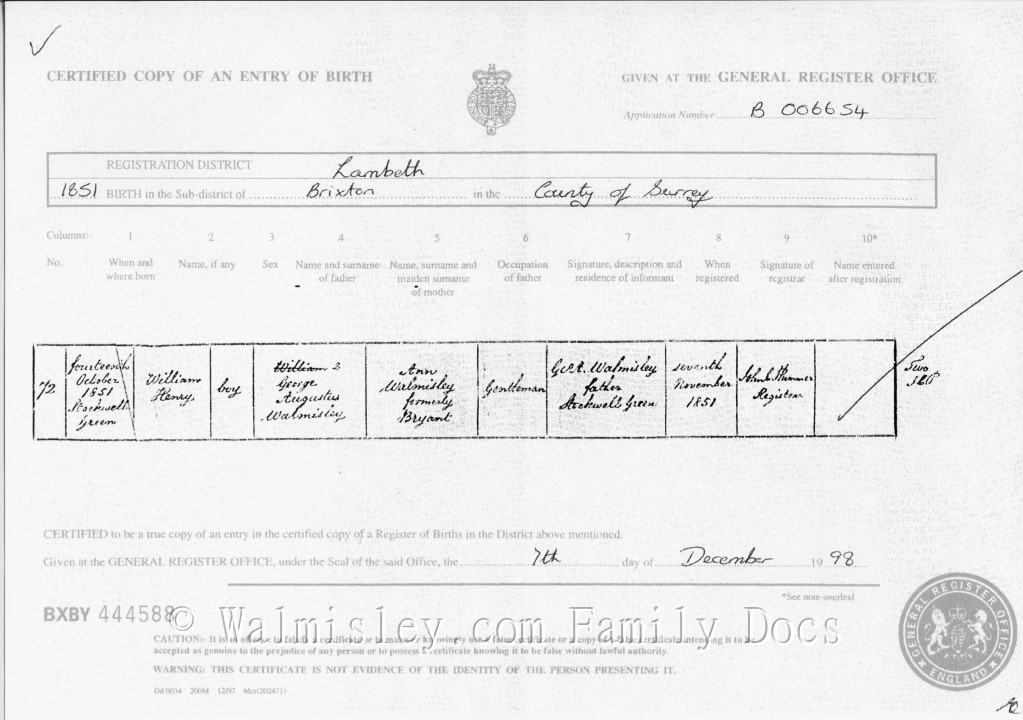 CERTIFIED COPY OF AN ENTRY OF BIRTH
GIVEN AT THE GENERAL REGISTER OFFICE
Application Number B 006654
REGISTRATION DISTRICT Lambeth
1851 BIRTH in the Sub-district of Brixton in the County of Surrey
Columns:- 1 2 3 4 5 6 7 8 9 10*
No. When and where born Name, if any Sex Name and surname of father Name, surname and maiden surname of mother Occupation of father Signature, description and residence of informant When registered Signature of registrar Name entered after registration
72
fourteenth
October
1851
Stockwell
Green
William
Henry
boy
William 2
George
Augustus
Walmisley
Ann
Walmisley
formerly
Bryant
Gentleman
G.A. Walmisley
father
Stockwell Green
seventh
November
1851
Registrar
Two
CERTIFIED to be a true copy of an entry in the certified copy of a Register of Births in the District above mentioned.
Given at the GENERAL REGISTER OFFICE, under the Seal of the said Office, the 7th day of December 1998
*See note overleaf
BXBY 444588
© Walmisley.com Family Docs
CAUTION:- It is an offence to falsify a certificate or to make or knowingly use a false certificate or a copy of a false certificate intending it to be
accepted as genuine to the prejudice of any person or to possess a certificate knowing it to be false without lawful authority.
WARNING: THIS CERTIFICATE IS NOT EVIDENCE OF THE IDENTITY OF THE PERSON PRESENTING IT.
GENERAL REGISTER OFFICE
ENGLAND